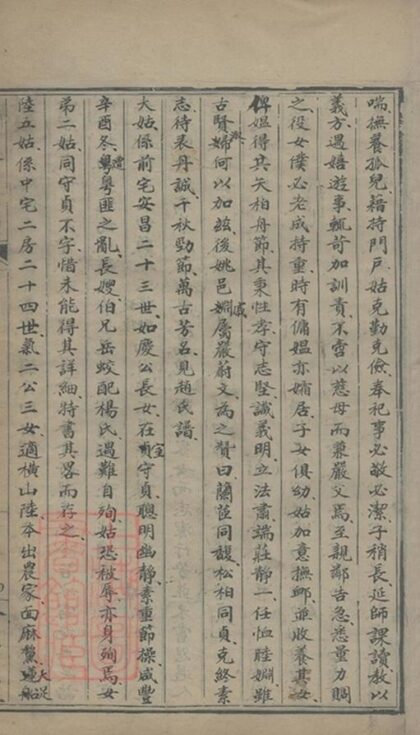 喘撫養孤兒藉持門戶姑克勤克儉奉祀事必敬必潔子稍長延師課讀教以
義方遇嬉遊事輒苛加訓責不啻以慈母而兼嚴父焉至親鄰告急悉量力賙
之役女僕必老成持重時有傭媼亦孀居子女俱幼姑加意撫卹並收養其女
俾媼得其矢柏舟節其秉性孝守志堅識義明立法肅端莊靜一任恤睦婣雖
古賢婦何以加茲後姚邑戚屬嚴蔚文為之贊曰蘭茝同馥松柏同貞克終素
志待表丹誠千秋勁節萬古芳名見趙氏譜
大姑係前宅安昌二十三世如慶公長女在室守貞聰明幽靜素重節操咸豐
辛酉冬遭粵匪之亂長嫂伯兄岳蛟配楊氏遇難自殉姑恐被辱亦身殉焉女
弟二姑同守貞不字惜未能得其詳細特書其畧而存之
陸五姑係中宅二房二十四世氣二公三女適橫山陸本出農家面麻黧大足